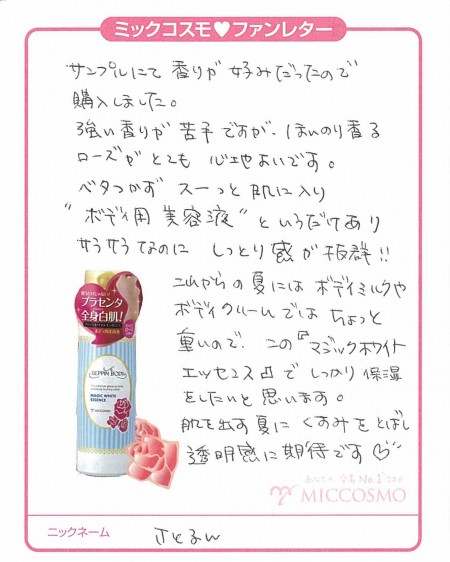 ミックコスモ♥ファンレター
サンプルにて香りが好みだったので
購入しました。
強い香りが苦手ですが、ほんのり香る
ローズがとても心地よいです。
ベタつかずスーっと肌に入り
"ボディ用美容液"というだけあり
サラサラなのにしっとり感が抜群!!
これからの夏にはボディミルクや
ボディクリームではちょっと
重いので、この『マジックホワイト
エッセンス』でしっかり保湿
をしたいと思います。
肌を出す夏にくすみをとばし
透明感に期待です♡
プラセンタ
全身白肌!
BEPPIN BODY
MAGIC WHITE
ESSENCE
MICCOSMO
あなたの
No.1
MICCOSMO
ニックネーム
さとるん